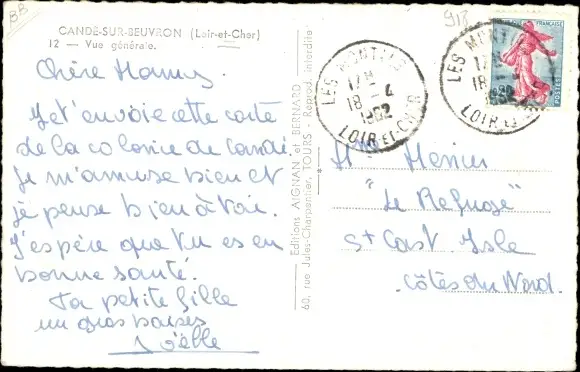 BB
918
CANDÉ-SUR-BEUVRON (Loir-et-Cher)
12 - Vue générale.
Chère Mamy.
Je t'envoie cette carte
de la colonie de candé.
Je m'amuse bien et
je pense bien à toi.
J'espère que tu es en
bonne santé.
Ta petite fille
un gros baiser
Joëlle
Editions AIGNAN et BERNARD
60, rue Jules-Charpentier, TOURS - Reprod. interdite
LES MONTILS
17H
18 - 4
1962
LOIR-ET-CHER
LES MONTILS
17H
18 -
1962
LOIR-ET-CHER
FRANÇAISE
POSTES
Mme Ménier
"Le Refuge"
St Cast Isle
Côtes du Nord.